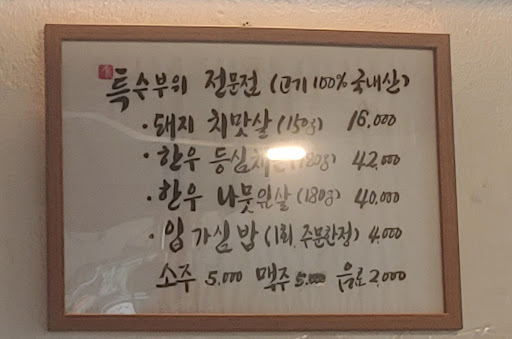 특수부위 전문점 (고기 100% 국내산)
· 돼지 치맛살 (150g) 16,000
· 한우 등심 (180g) 42,000
· 한우 (180g) 40,000
· 입가심 밥 (1회, 주문한정) 4,000
소주 5,000 맥주 5,000 음료 2,000